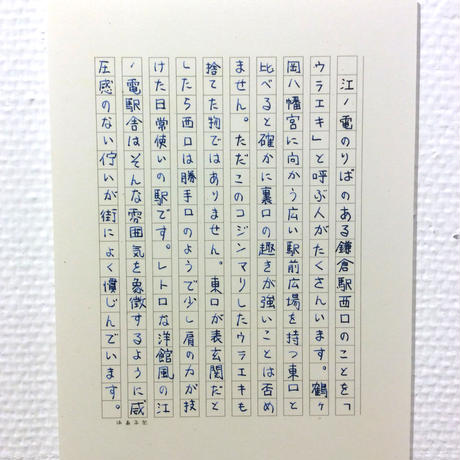 江ノ電のりばのある鎌倉駅西口のことを「
ウラエキ」と呼ぶ人がたくさんいます。鶴ヶ
岡八幡宮に向かう広い駅前広場を持つ東口と
比べると確かに裏口の趣きが強いことは否め
ません。ただこのコジンマリしたウラエキも
捨てた物ではありません。東口が表玄関だと
したら西口は勝手口のようで少し肩の力が技
けた日常使いの駅です。レトロな洋館風の江
ノ電駅舎はそんな雰囲気を象徴するように威
圧感のない佇いが街によく慣じんでいます。